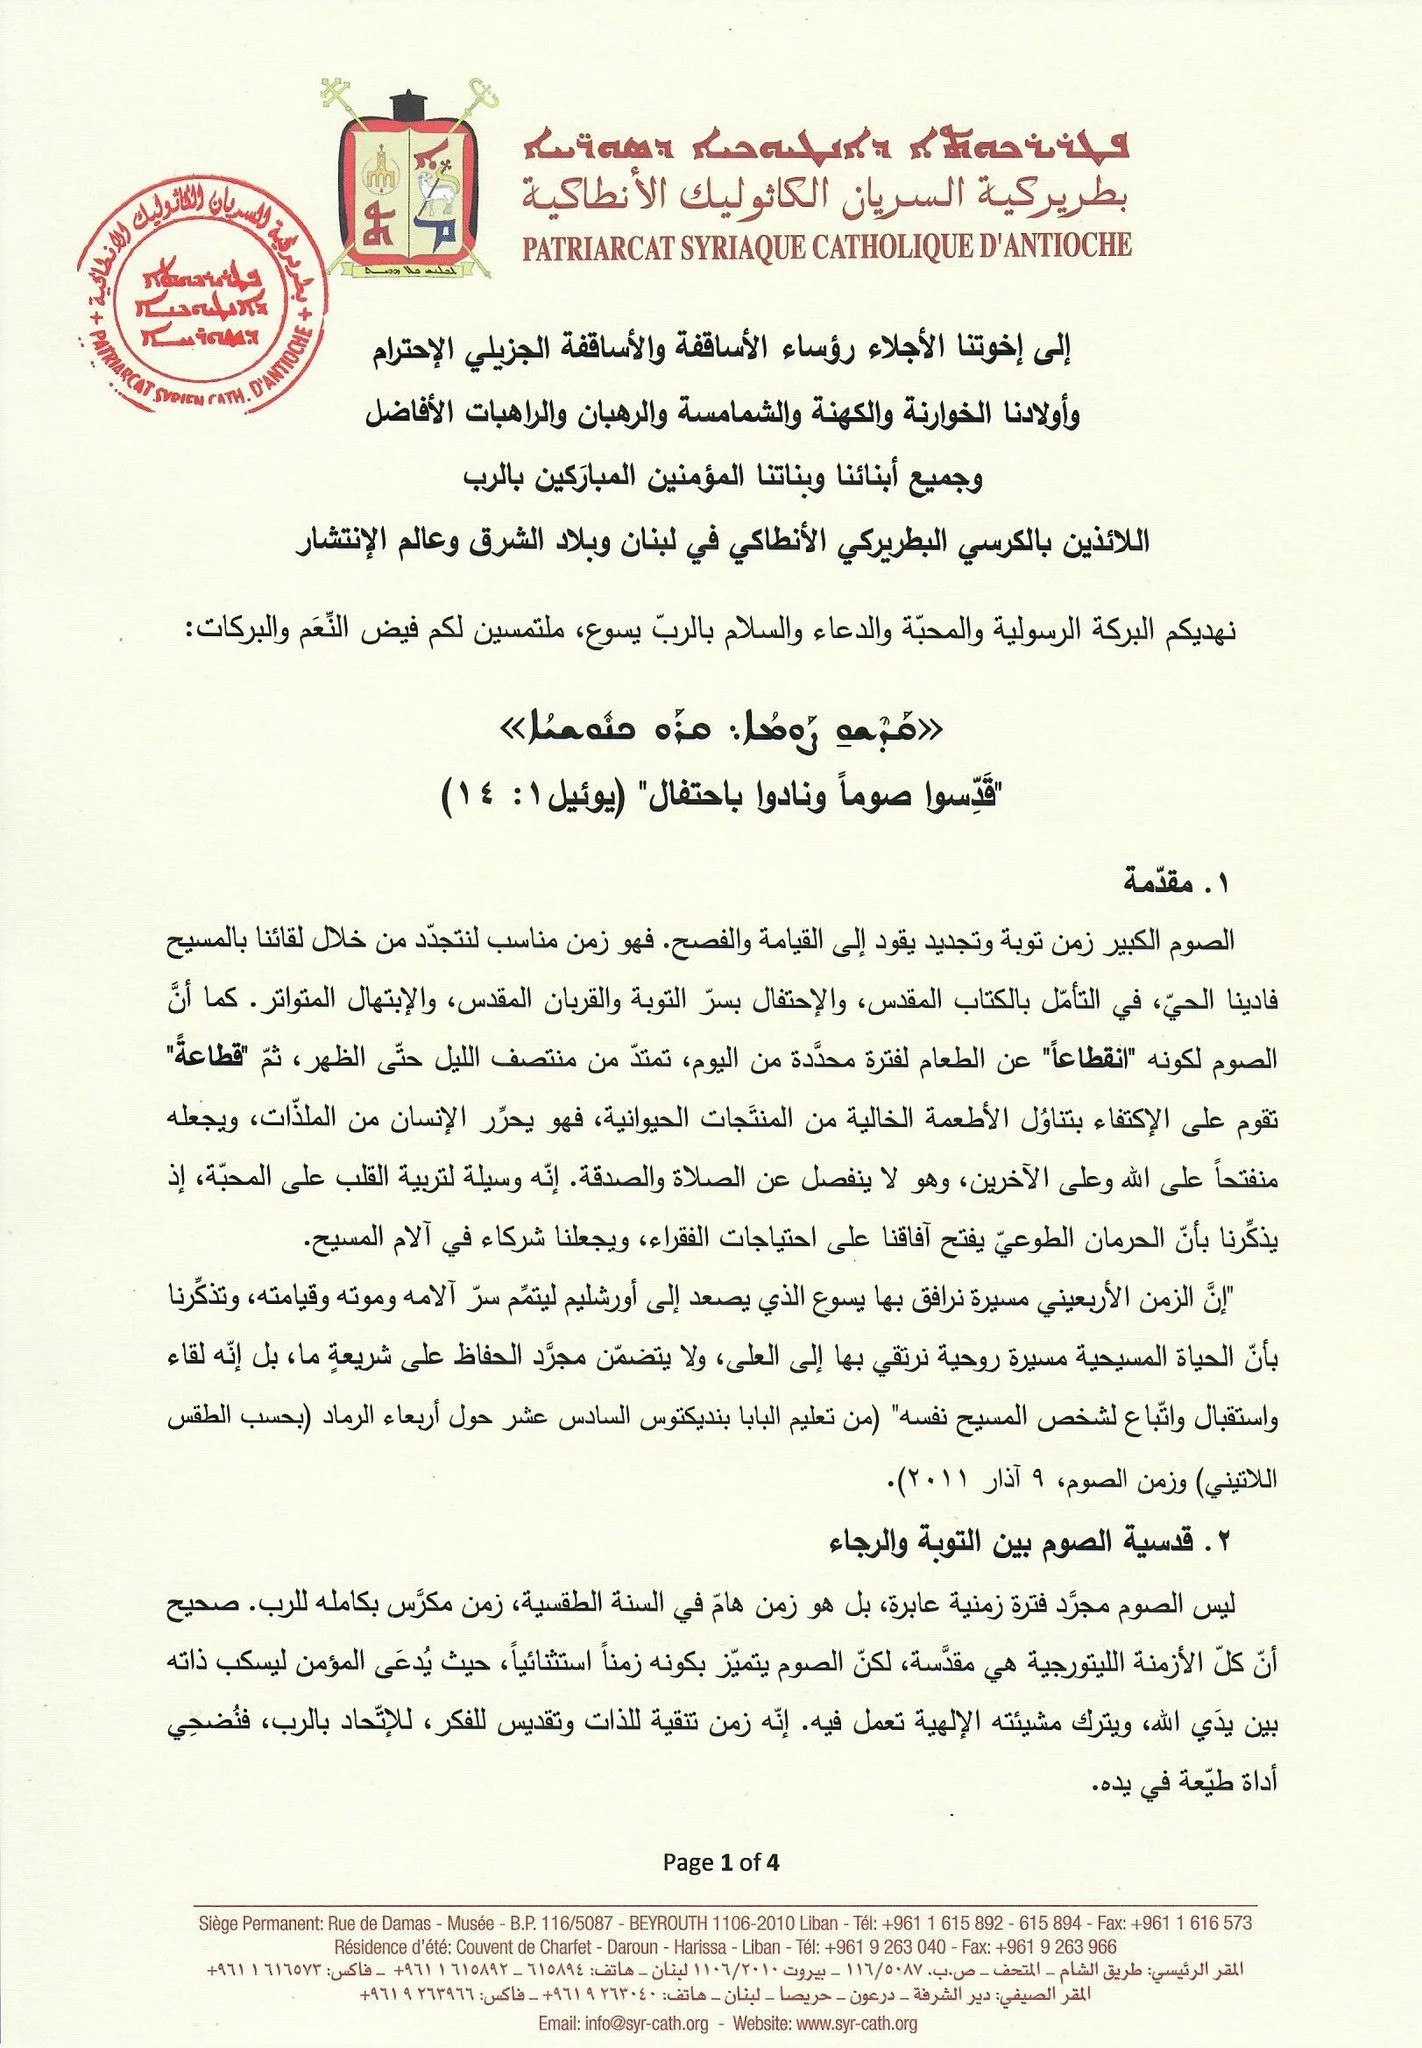 ܦܛܪܝܪܟܘܬܐ ܕܐܢܛܝܘܟܝܐ ܕܣܘܪܝܝܐ
بطريركية السريان الكاثوليك الأنطاكية
PATRIARCAT SYRIAQUE CATHOLIQUE D'ANTIOCHE
بطريركية السريان الكاثوليك الانطاكية
PATRIARCAT SYRIEN CATH. D'ANTIOCHE
إلى إخوتنا الأجلاء رؤساء الأساقفة والأساقفة الجزيلي الإحترام
وأولادنا الخوارنة والكهنة والشمامسة والرهبان والراهبات الأفاضل
وجميع أبنائنا وبناتنا المؤمنين المبارَكين بالرب
اللائذين بالكرسي البطريركي الأنطاكي في لبنان وبلاد الشرق وعالم الإنتشار
نهديكم البركة الرسولية والمحبّة والدعاء والسلام بالربّ يسوع، ملتمسين لكم فيض النِّعَم والبركات:
"قَدِّسوا صوماً ونادوا باحتفال" (يوئيل١: ١٤)
١. مقدّمة
الصوم الكبير زمن توبة وتجديد يقود إلى القيامة والفصح. فهو زمن مناسب لنتجدّد من خلال لقائنا بالمسيح
فادينا الحيّ، في التأمّل بالكتاب المقدس، والإحتفال بسرّ التوبة والقربان المقدس، والإبتهال المتواتر. كما أنَّ
الصوم لكونه "انقطاعاً" عن الطعام لفترة محدَّدة من اليوم، تمتدّ من منتصف الليل حتّى الظهر، ثمّ "قطاعةً"
تقوم على الإكتفاء بتناوُل الأطعمة الخالية من المنتَجات الحيوانية، فهو يحرِّر الإنسان من الملذّات، ويجعله
منفتحاً على الله وعلى الآخرين، وهو لا ينفصل عن الصلاة والصدقة. إنّه وسيلة لتربية القلب على المحبّة، إذ
يذكِّرنا بأنّ الحرمان الطوعيّ يفتح آفاقنا على احتياجات الفقراء، ويجعلنا شركاء في آلام المسيح.
"إنَّ الزمن الأربعيني مسيرة نرافق بها يسوع الذي يصعد إلى أورشليم ليتمِّم سرّ آلامه وموته وقيامته، وتذكِّرنا
بأنّ الحياة المسيحية مسيرة روحية نرتقي بها إلى العلى، ولا يتضمّن مجرَّد الحفاظ على شريعةٍ ما، بل إنّه لقاء
واستقبال واتّباع لشخص المسيح نفسه" (من تعليم البابا بنديكتوس السادس عشر حول أربعاء الرماد (بحسب الطقس
اللاتيني) وزمن الصوم، ٩ آذار ٢٠١١).
٢. قدسية الصوم بين التوبة والرجاء
ليس الصوم مجرَّد فترة زمنية عابرة، بل هو زمن هامّ في السنة الطقسية، زمن مكرَّس بكامله للرب. صحيح
أنّ كلّ الأزمنة الليتورجية هي مقدَّسة، لكنّ الصوم يتميّز بكونه زمناً استثنائياً، حيث يُدعَى المؤمن ليسكب ذاته
بين يدَي الله، ويترك مشيئته الإلهية تعمل فيه. إنّه زمن تنقية للذات وتقديس للفكر، للإتّحاد بالرب، فنُضحِي
أداة طيّعة في يده.
Page 1 of 4
Siège Permanent: Rue de Damas - Musée - B.P. 116/5087 - BEYROUTH 1106-2010 Liban - Tél: +961 1 615 892 - 615 894 - Fax: +961 1 616 573
Résidence d'été: Couvent de Charfet - Daroun - Harissa - Liban - Tél: +961 9 263 040 - Fax: +961 9 263 966
المقر الرئيسي: طريق الشام – المتحف – ص.ب. ١١٦/٥٠٨٧ – بيروت ١١٠٦/٢٠١٠ لبنان – هاتف: ٦١٥٨٩٤ – ٦١٥٨٩٢ ١ ٩٦١+ – فاكس: ٦١٦٥٧٣ ١ ٩٦١+
المقر الصيفي: دير الشرفة – درعون – حريصا – لبنان – هاتف: ٢٦٣٠٤٠ ٩ ٩٦١+ – فاكس: ٢٦٣٩٦٦ ٩ ٩٦١+
Email: info@syr-cath.org - Website: www.syr-cath.org